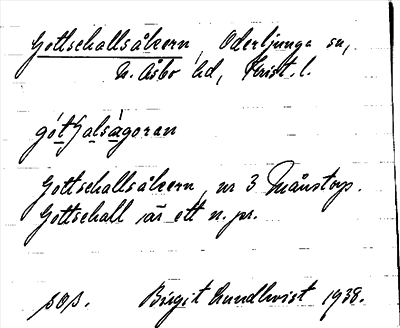 Gottschallsåkern, Oderljunga sn,
N. Åsbo hd, Krist. l.
gótʃalságoran
Gottschallsåkern, nr 3 Månstorp.
Gottschall är ett n. pr.
Birgit Lundkvist 1938.